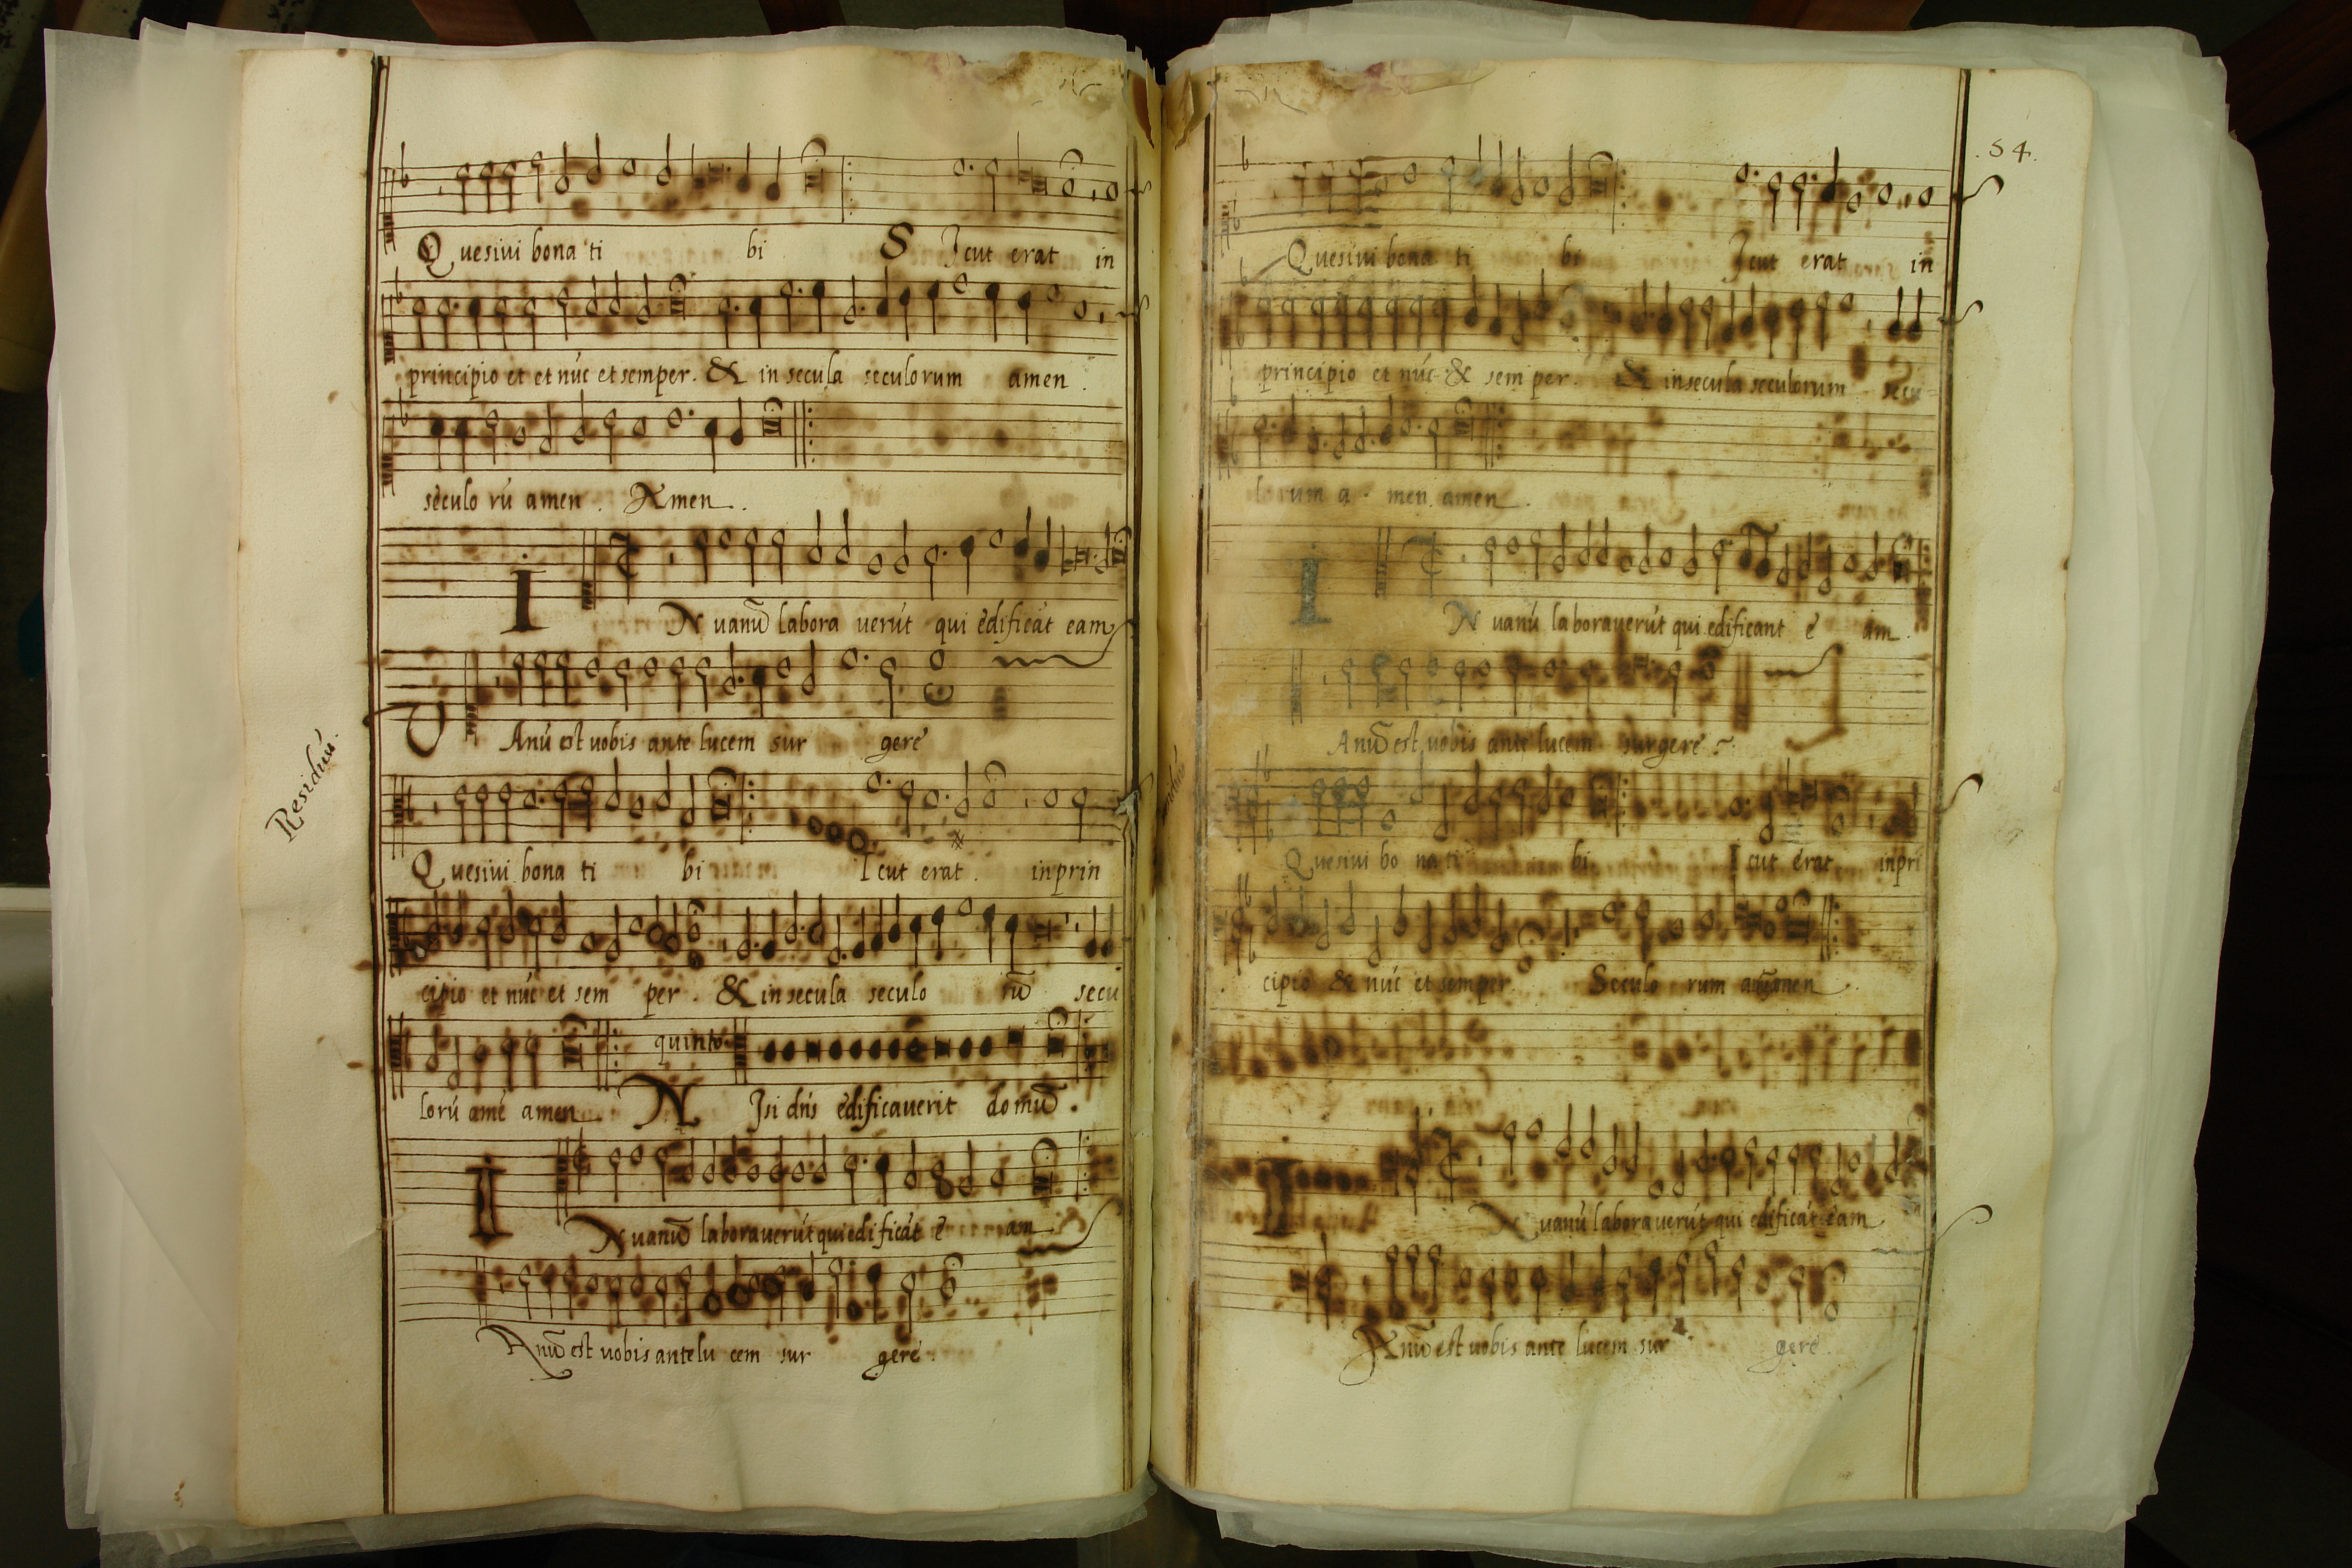 Quesivi bona ti bi Sicut erat in
principio et et núc et semper. & in secula seculorum amen.
seculo rú amen. Amen.
IN uanũ labora verút qui edificát eam
Vanú est uobis ante lucem sur gere
Residuú.
Quesivi bona ti bi Icut erat. in prin
cipio et núc et sem per. & in secula seculo rũ secu
lorú amé amen quinto Nisi dńs edificaverit domũ.
IN uanũ laboraverút qui edificát e am
Anũ est uobis ante lu cem sur gere.
54.
Quesivi bona ti bi Icut erat in
principio et núc & semper. & in secula seculorum secu
lorum a men amen.
IN uanú laboraverút qui edificant e am.
Anũ est uobis ante lucem surgere
Quesivi bo na ti bi Icut erat inpri
cipio & núc et semper. Seculo rum amen.
IN uanú laboraverút qui edificát eam
Anũ est uobis ante lucem sur gere.